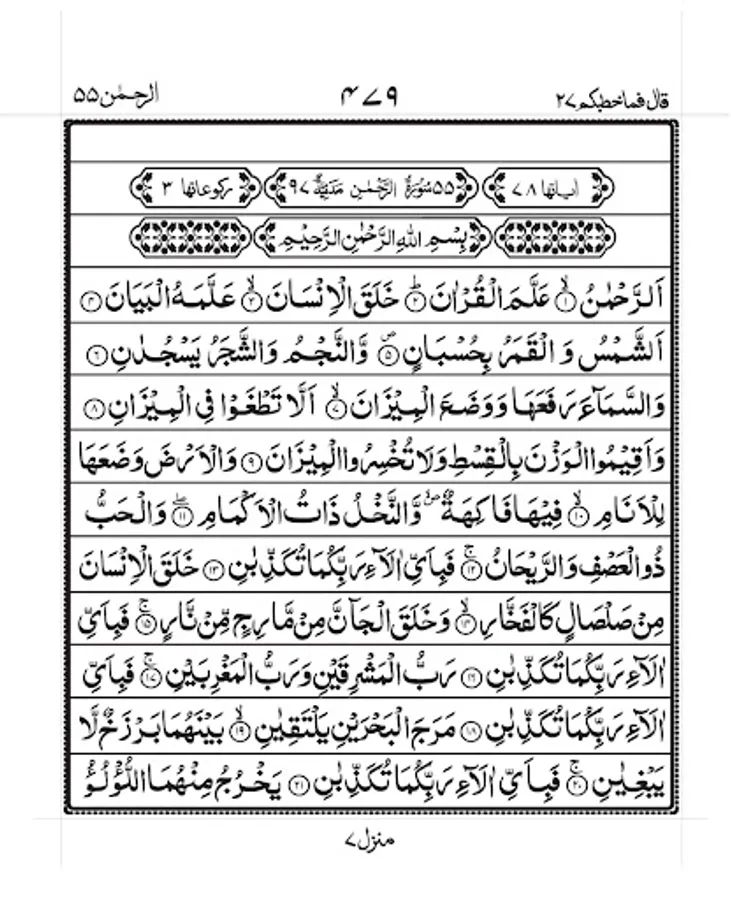 قال فما خطبكم ٢٧ ٤٧٩ الرحمٰن ٥٥
اٰیاتها ٧٨ ٥٥ سُوْرَةُ الرَّحْمٰنِ مَدَنِيَّةٌ ٩٧ رکوعاتها ٣
بِسْمِ اللهِ الرَّحْمٰنِ الرَّحِيْمِ
اَلرَّحْمٰنُ ۙ﴿١﴾ عَلَّمَ الْقُرْاٰنَ ؕ﴿٢﴾ خَلَقَ الْاِنْسَانَ ۙ﴿٣﴾ عَلَّمَهُ الْبَيَانَ ﴿٤﴾
اَلشَّمْسُ وَ الْقَمَرُ بِحُسْبَانٍ ۪﴿٥﴾ وَّالنَّجْمُ وَالشَّجَرُ يَسْجُدٰنِ ﴿٦﴾
وَالسَّمَآءَ رَفَعَهَا وَوَضَعَ الْمِيْزَانَ ۙ﴿٧﴾ اَلَّا تَطْغَوْا فِى الْمِيْزَانِ ﴿٨﴾
وَاَقِيْمُوا الْوَزْنَ بِالْقِسْطِ وَلَا تُخْسِرُوا الْمِيْزَانَ ﴿٩﴾ وَالْاَرْضَ وَضَعَهَا
لِلْاَنَامِ ۙ﴿١٠﴾ فِيْهَا فَاكِهَةٌ ۪ۙ وَّالنَّخْلُ ذَاتُ الْاَكْمَامِ ۖ﴿١١﴾ وَالْحَبُّ
ذُو الْعَصْفِ وَالرَّيْحَانُ ۚ﴿١٢﴾ فَبِاَىِّ اٰلَآءِ رَبِّكُمَا تُكَذِّبٰنِ ﴿١٣﴾ خَلَقَ الْاِنْسَانَ
مِنْ صَلْصَالٍ كَالْفَخَّارِ ۙ﴿١٤﴾ وَخَلَقَ الْجَآنَّ مِنْ مَّارِجٍ مِّنْ نَّارٍ ۚ﴿١٥﴾ فَبِاَىِّ
اٰلَآءِ رَبِّكُمَا تُكَذِّبٰنِ ﴿١٦﴾ رَبُّ الْمَشْرِقَيْنِ وَرَبُّ الْمَغْرِبَيْنِ ۚ﴿١٧﴾ فَبِاَىِّ
اٰلَآءِ رَبِّكُمَا تُكَذِّبٰنِ ﴿١٨﴾ مَرَجَ الْبَحْرَيْنِ يَلْتَقِيٰنِ ۙ﴿١٩﴾ بَيْنَهُمَا بَرْزَخٌ لَّا
يَبْغِيٰنِ ۚ﴿٢٠﴾ فَبِاَىِّ اٰلَآءِ رَبِّكُمَا تُكَذِّبٰنِ ﴿٢١﴾ يَخْرُجُ مِنْهُمَا اللُّؤْلُؤُ
منزل ٧